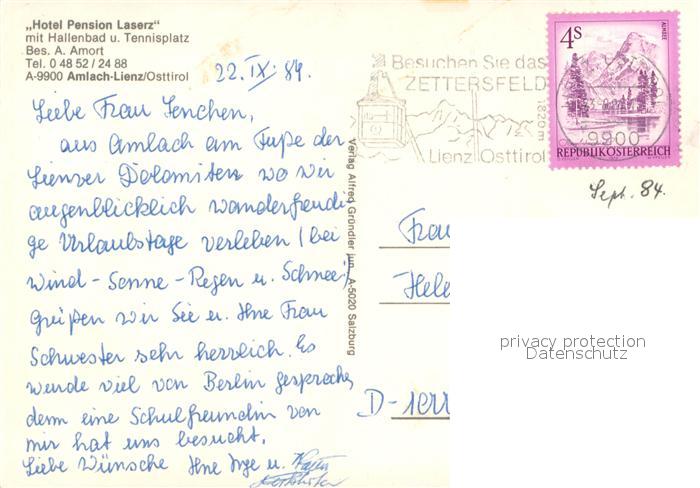 „Hotel Pension Laserz“
mit Hallenbad u. Tennisplatz
Bes. A. Amort
Tel. 0 48 52 / 24 88
A-9900 Amlach-Lienz/Osttirol
22. IX. 84.
Liebe Frau Lenchen,
aus Amlach am Fuße der
Lienzer Dolomiten wo wir
augenblicklich wanderfreudi-
ge Urlaubstage verleben (bei
Wind-Sonne-Regen u. Schnee)
Grüßen wir Sie u. Ihre Frau
Schwester sehr herzlich. Es
wurde viel von Berlin gesprochen,
denn eine Schulfreundin von
mir hat uns besucht.
Liebe Wünsche Ihre Inge u.
Verlag Alfred Gründler jun., A-5020 Salzburg
Besuchen Sie das
ZETTERSFELD
1820 m
Lienz Osttirol
4S
ALMSEE
9900
REPUBLIK ÖSTERREICH
Sept. 84.
Frau
Hele
D-1
privacy protection
Datenschutz